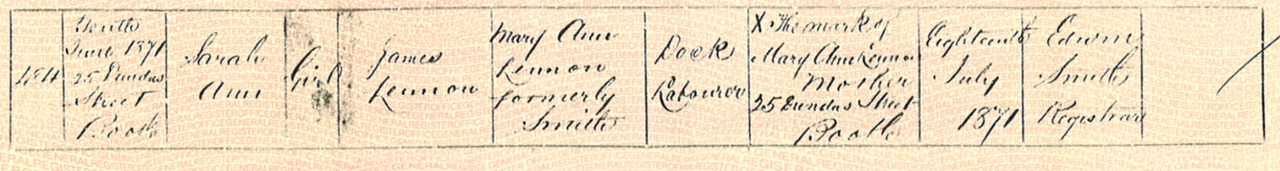 484
Tenth
June 1871
25 Dundas
Street
Bootle
Sarah
Ann
Girl
James
Lennon
Mary Ann
Lennon
formerly
Smith
Dock
Labourer
X The mark of
Mary Ann Lennon
Mother
25 Dundas Street
Bootle
Eighteenth
July
1871
Edwin
Smith
Registrar